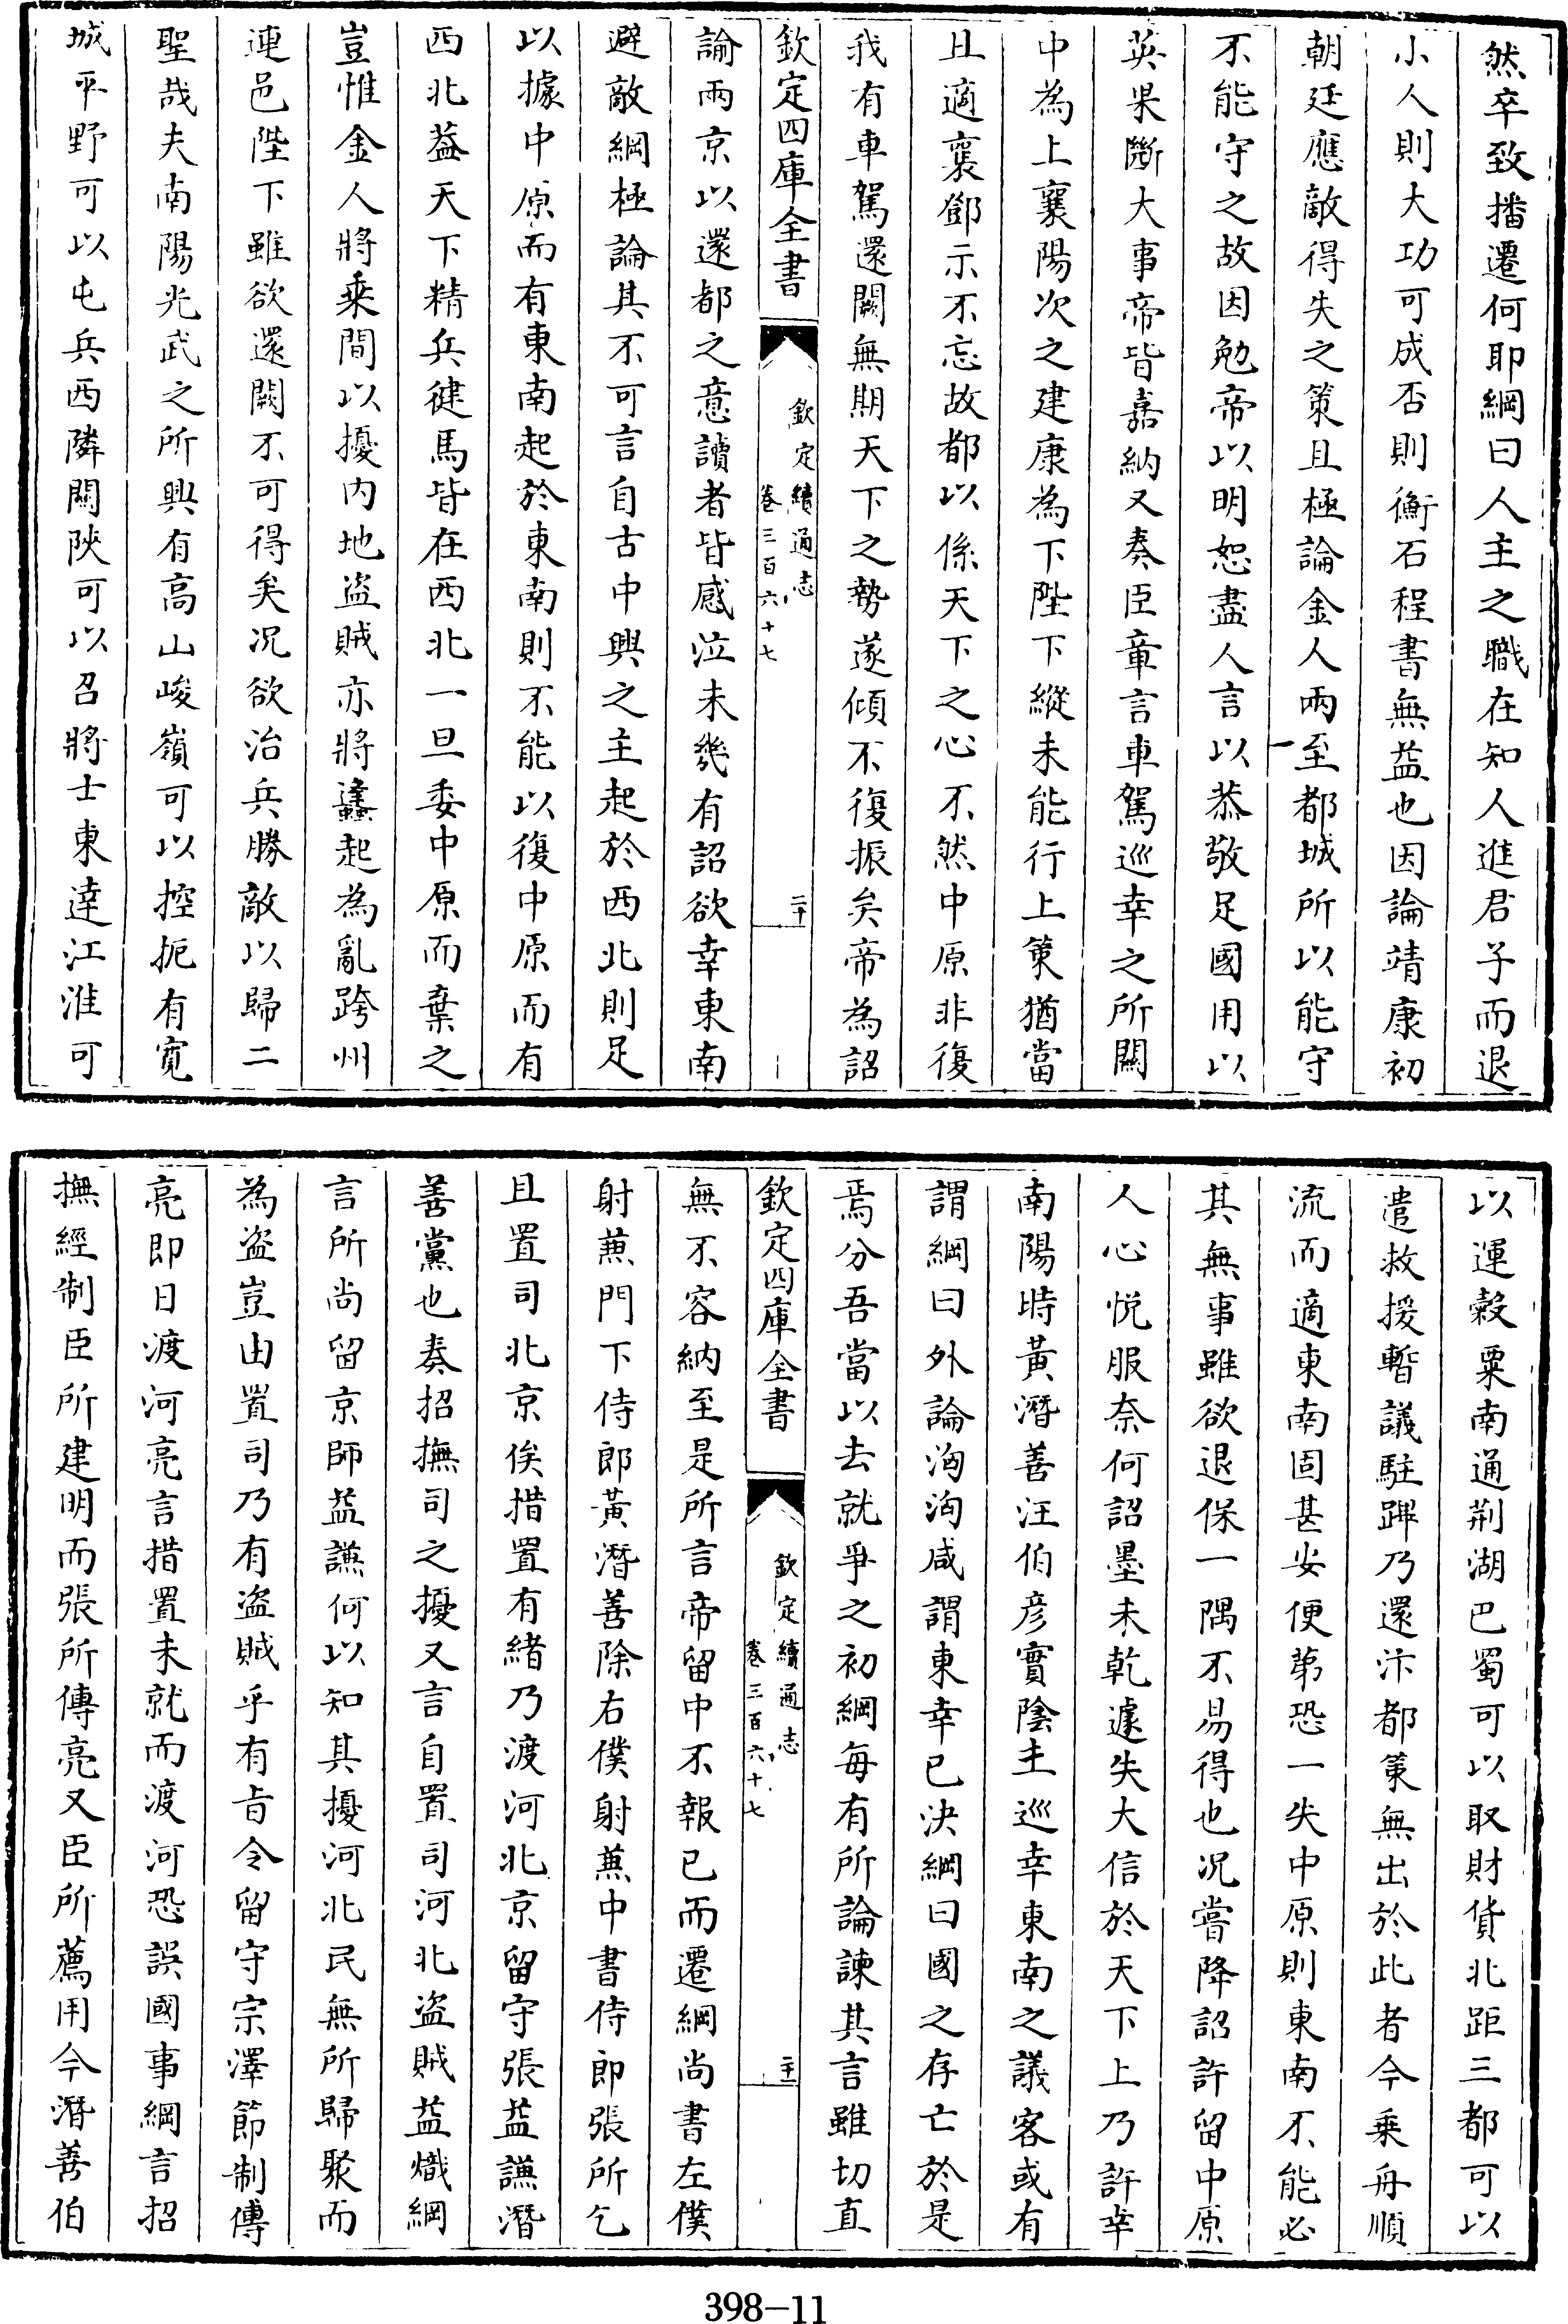 然卒致播遷何耶綱曰人主之職在知人進君子而退
小人則大功可成否則衡石程書無益也因論靖康初
朝廷應敵得失之策且極論金人兩至都城所以能守
不能守之故因勉帝以明恕盡人言以恭敬足國用以
英果斷大事帝皆嘉納又奏臣章言車駕巡幸之所關
中為上襄陽次之建康為下陛下縱未能行上策猶當
且適襄鄧示不忘故都以係天下之心不然中原非復
我有車駕還闕無期天下之勢遂傾不復振矣帝為詔
欽定四庫全書
欽定續通志
卷三百六十七
二十
諭兩京以還都之意讀者皆感泣未幾有詔欲幸東南
避敵綱極論其不可言自古中興之主起於西北則足
以據中原而有東南起於東南則不能以復中原而有
西北葢天下精兵健馬皆在西北一旦委中原而棄之
豈惟金人將乘間以擾內地盜賊亦將蠭起為亂跨州
連邑陛下雖欲還闕不可得矣况欲治兵勝敵以歸二
聖哉夫南陽光武之所興有高山峻嶺可以控扼有寛
城平野可以屯兵西隣關陜可以召將士東達江淮可
以運糓粟南通荆湖巴蜀可以取財貨北距三都可以
遣救援暫議駐蹕乃還汴都策無出於此者今乗舟順
流而適東南固甚安便第恐一失中原則東南不能必
其無事雖欲退保一隅不易得也况嘗降詔許留中原
人心悦服奈何詔墨未乾遽失大信於天下上乃許幸
南陽時黃潛善汪伯彦實陰主巡幸東南之議客或有
謂綱曰外論洶洶咸謂東幸已決綱曰國之存亡於是
焉分吾當以去就爭之初綱每有所論諫其言雖切直
欽定四庫全書
欽定續通志
卷三百六十七
二十
無不容納至是所言帝留中不報已而遷綱尚書左僕
射兼門下侍郎黃潛善除右僕射兼中書侍郎張所乞
且置司北京俟措置有緒乃渡河北京留守張益謙潛
善黨也奏招撫司之擾又言自置司河北盜賊益熾綱
言所尚留京師益謙何以知其擾河北民無所歸聚而
為盜豈由置司乃有盜賊乎有旨令留守宗澤節制傅
亮即日渡河亮言措置未就而渡河恐誤國事綱言招
撫經制臣所建明而張所傅亮又臣所薦用今潛善伯
398-11